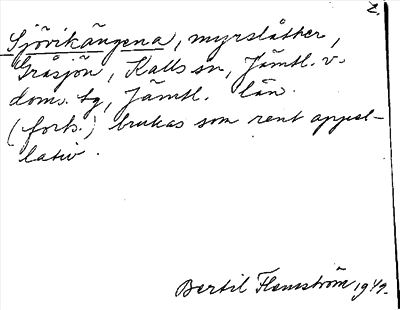 N.
Sjövikängena, myrslåtter,
Gråsjön, Kalls sn, Jämtl. v.
doms. tg, Jämtl. län.
(forts.) brukas som rent appel-
lativ.
Bertil Flemström 1949.